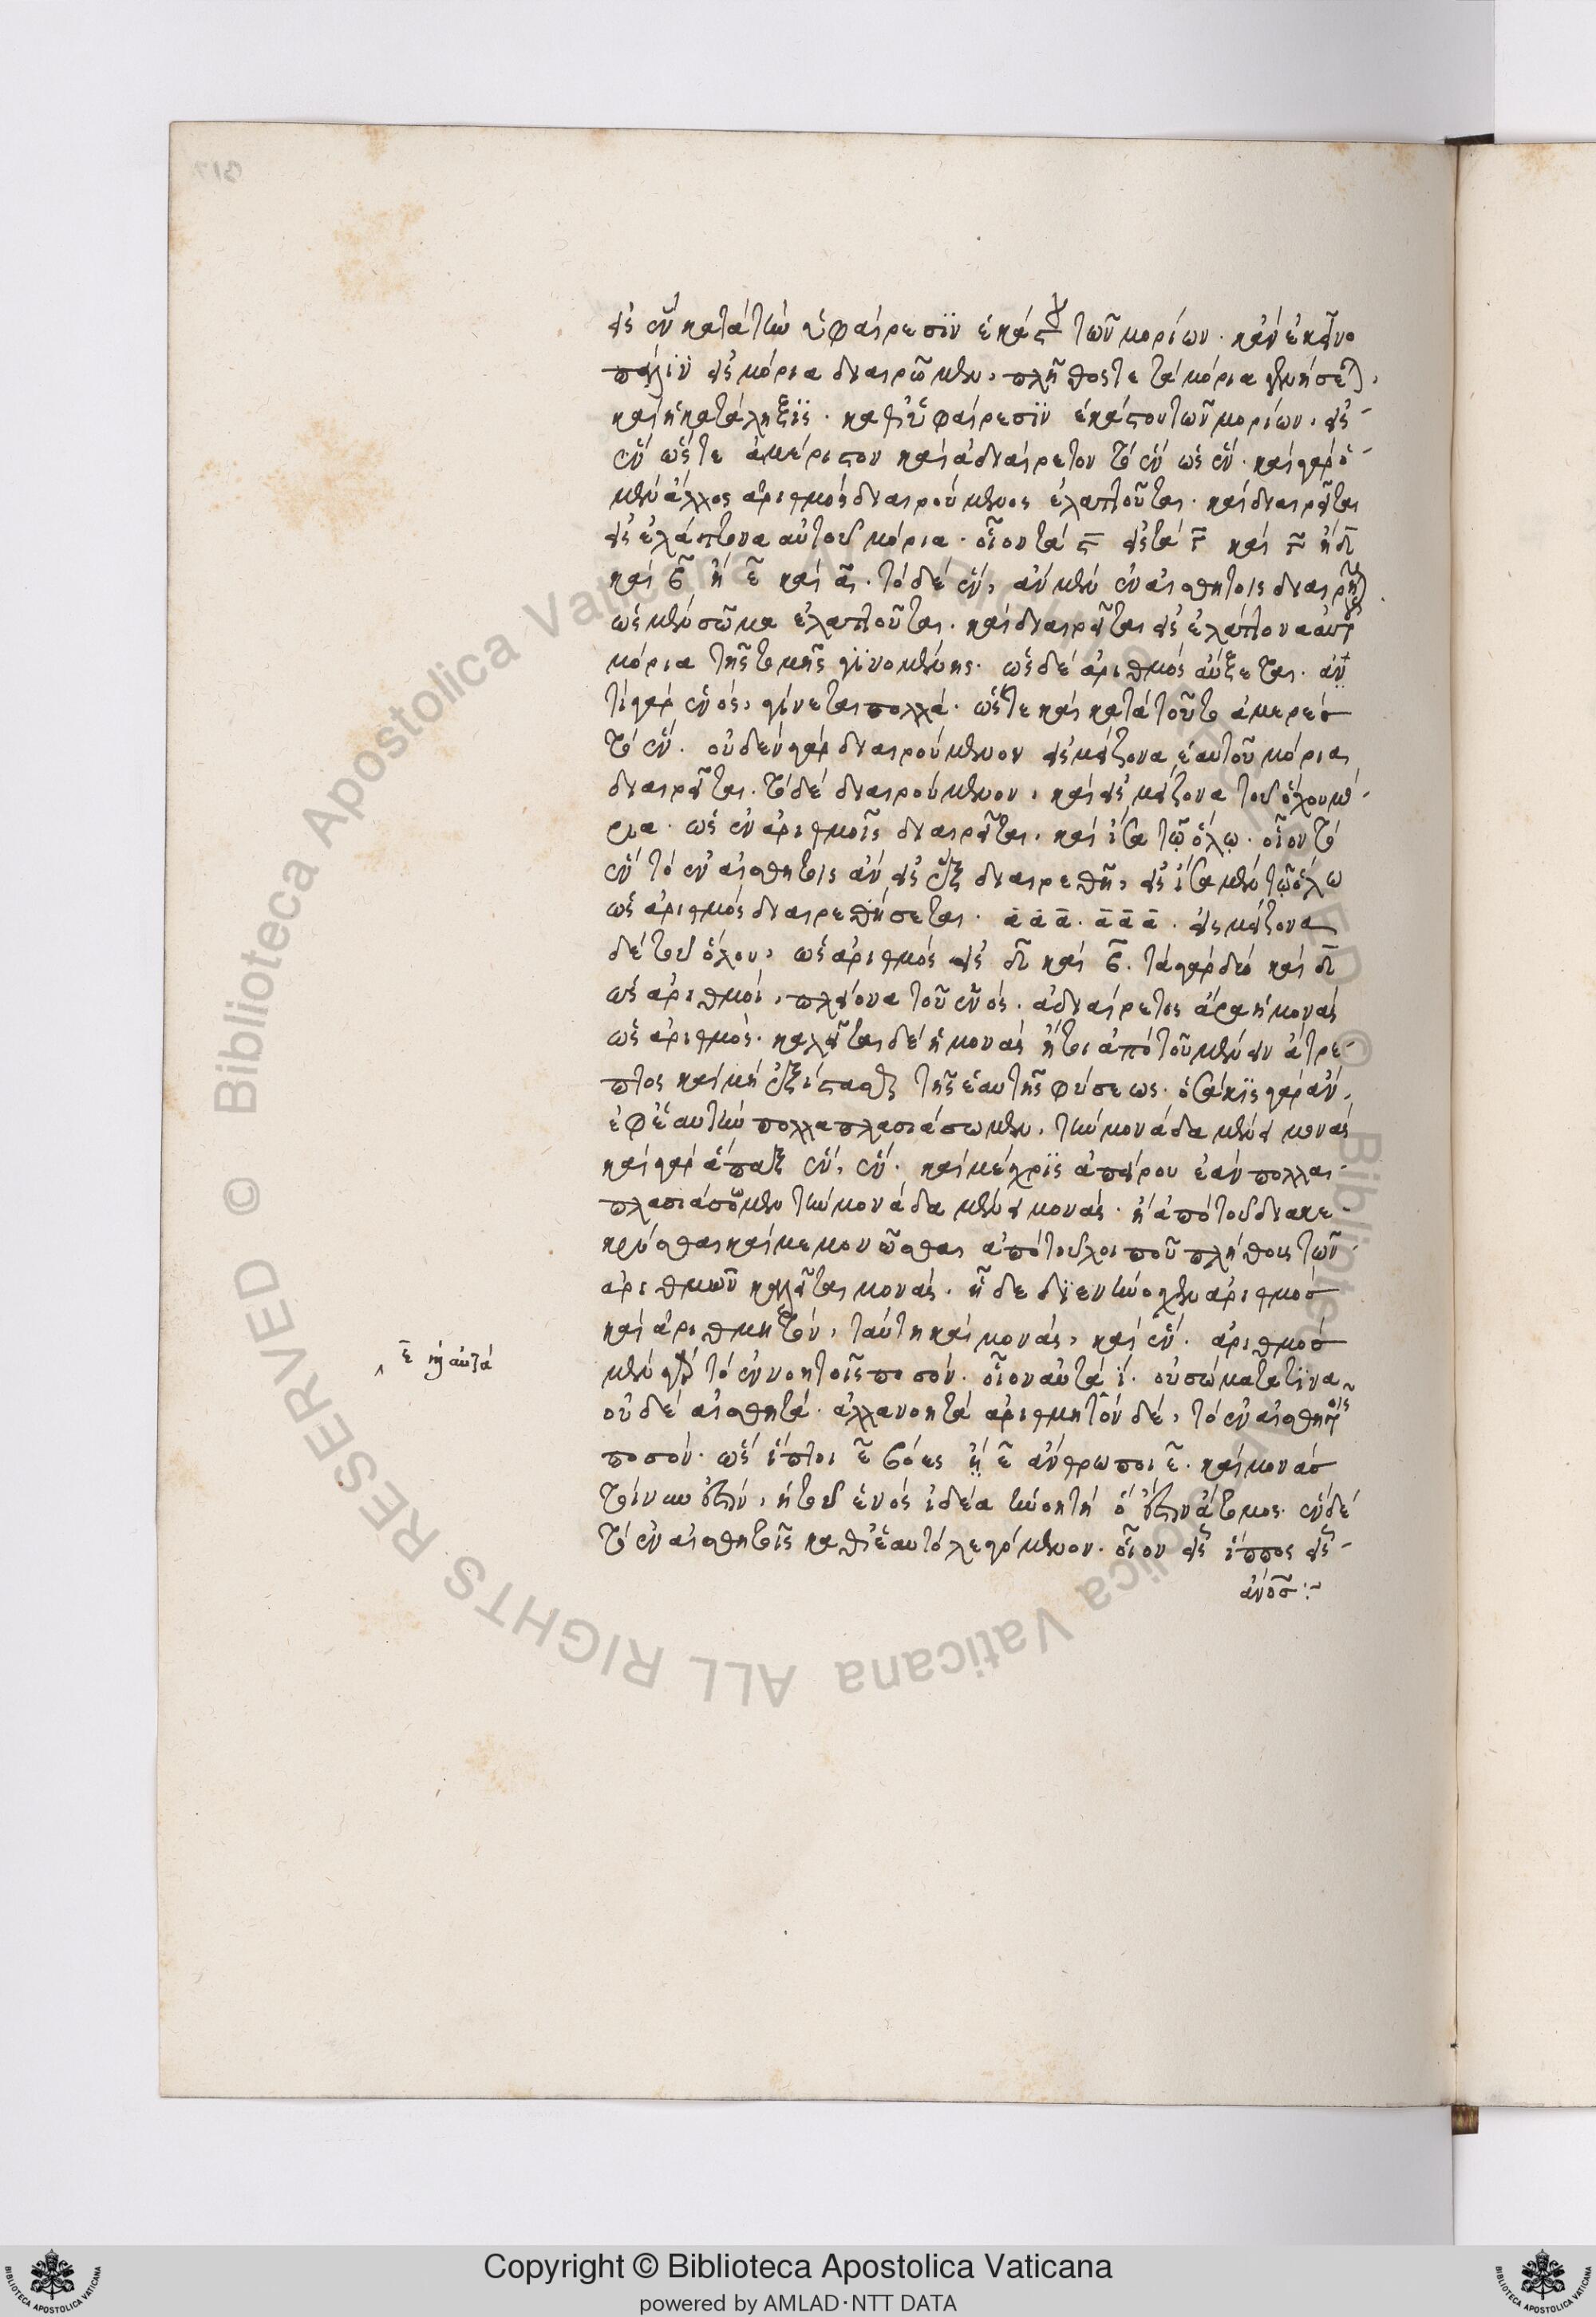 εἰς ἓν κατὰ τὴν ὑφαίρεσϊν ἑκάστου τῶν μορίων· κἂν ἐκεῖνο
πάλϊν εἰς μόρια διαιρῶμεν, πλῆθος τε τὰ μόρια γενήσεται,
καὶ ἡ κατάληξϊς· καθ' ὑφαίρεσϊν ἑκάστου τῶν μορίων, εἰς
ἓν ὥστε ἀμέριστον καὶ ἀδιαίρετον τὸ ἓν ὡς ἕν· καὶ γὰρ ὁ
μὲν ἄλλος ἀριθμὸς διαιρούμενος ἐλαττοῦται· καὶ διαιρεῖται
εἰς ἐλάττονα αὐτοῦ μόρια· οἷον τὰ ϛ̄ εἰς τὰ γ̄ καὶ γ̄ ἢ δ̄
καὶ β̄ ἢ ε̄ καὶ ᾱ. τὸ δὲ ἓν, ἂν μὲν ἐν αἰσθητοῖς διαιρῆται
ὡς μὲν σῶμα ἐλαττοῦται· καὶ διαιρεῖται εἰς ἐλάττονα αὐτοῦ
μόρια τῆς τομῆς γϊνομένης· ὡς δὲ ἀριθμὸς αὔξεται· ἀν
τὶ γὰρ ἑνὸς, γίνεται πολλά· ὥστε καὶ κατὰ τοῦτο ἀμερὲς
τὸ ἕν. οὐδὲν γὰρ διαιρούμενον εἰς μείζονα ἑαυτοῦ μόρια
διαιρεῖται. τὸ δὲ διαιρούμενον, καὶ εἰς μείζονα τοῦ ὅλου μό
ρια· ὡς ἐν ἀριθμοῖς διαιρεῖται, καὶ ἴσα τῷ ὅλῳ· οἷον τὸ
ἓν τὸ ἐν αἰσθητοῖς ἂν εἰς ἓξ διαιρεθῇ, εἰς ἴσα μὲν τῷ ὅλω
ὡς ἀριθμὸς διαιρεθήσεται· ᾱ ᾱ ᾱ. ᾱ ᾱ ᾱ. εἰς μείζονα
δὲ τοῦ ὅλου, ὡς ἀριθμὸς εἰς δ̄ καὶ β̄. τὰ γὰρ δύο καὶ δ̄
ὡς ἀριθμοὶ, πλείονα τοῦ ἑνός. ἀδιαίρετος ἄρα ἡ μονὰς
ὡς ἀριθμός· καλεῖται δὲ ἡ μονὰς ἤτοι ἀπὸ τοῦ μένειν ἄτρε
πτος καὶ μὴ ἐξίστασθαι τῆς ἑαυτῆς φύσεως· ὁσάκϊς γὰρ ἂν,
ἐφ' ἑαυτὴν πολλαπλασιάσωμεν, τὴν μονάδα μένει μονὰς
καὶ γὰρ ἅπαξ ἓν, ἕν· καὶ μέχρϊς ἀπείρου ἐὰν πολλα
πλασιάσωμεν τὴν μονάδα μένει μονάς. ἢ ἀπὸ τοῦ διακε
κρίσθαι καὶ μεμονῶσθαι ἀπὸ τοῦ λοιποῦ πλήθους τῶν
ἀριθμῶν καλεῖται μονάς. ἧ δε διενήνοχεν ἀριθμὸς
καὶ ἀριθμητὸν, ταύτη καὶ μονὰς, καὶ ἕν. ἀριθμὸς
μὲν γάρ τὸ ἐν νοητοῖς ποσόν. οἷον αὐτὰ ί. οὐ σώματα τϊνα
οὐδὲ αἰσθητὰ· ἀλλα νοητὰ ἀριθμητὸν δὲ, τὸ ἐν αἰσθητοῖς
ποσόν· ὡς ἵπποι ε̄ βόες ἢ ε̄ ἄνθρωποι ε̄. καὶ μονὰς
τοίνυν ἐστὶν, ἡ τοῦ ἑνὸς ἰδέα ἡ νοητὴ ὅ ἐστϊν ἄτομος· ἓν δὲ
τὸ ἐν αἰσθητοῖς καθ' ἑαυτὸ λεγόμενον· οἷον εἷς ἵππος εἷς
ἄνος:~
ε̄ καὶ αὐτὰ